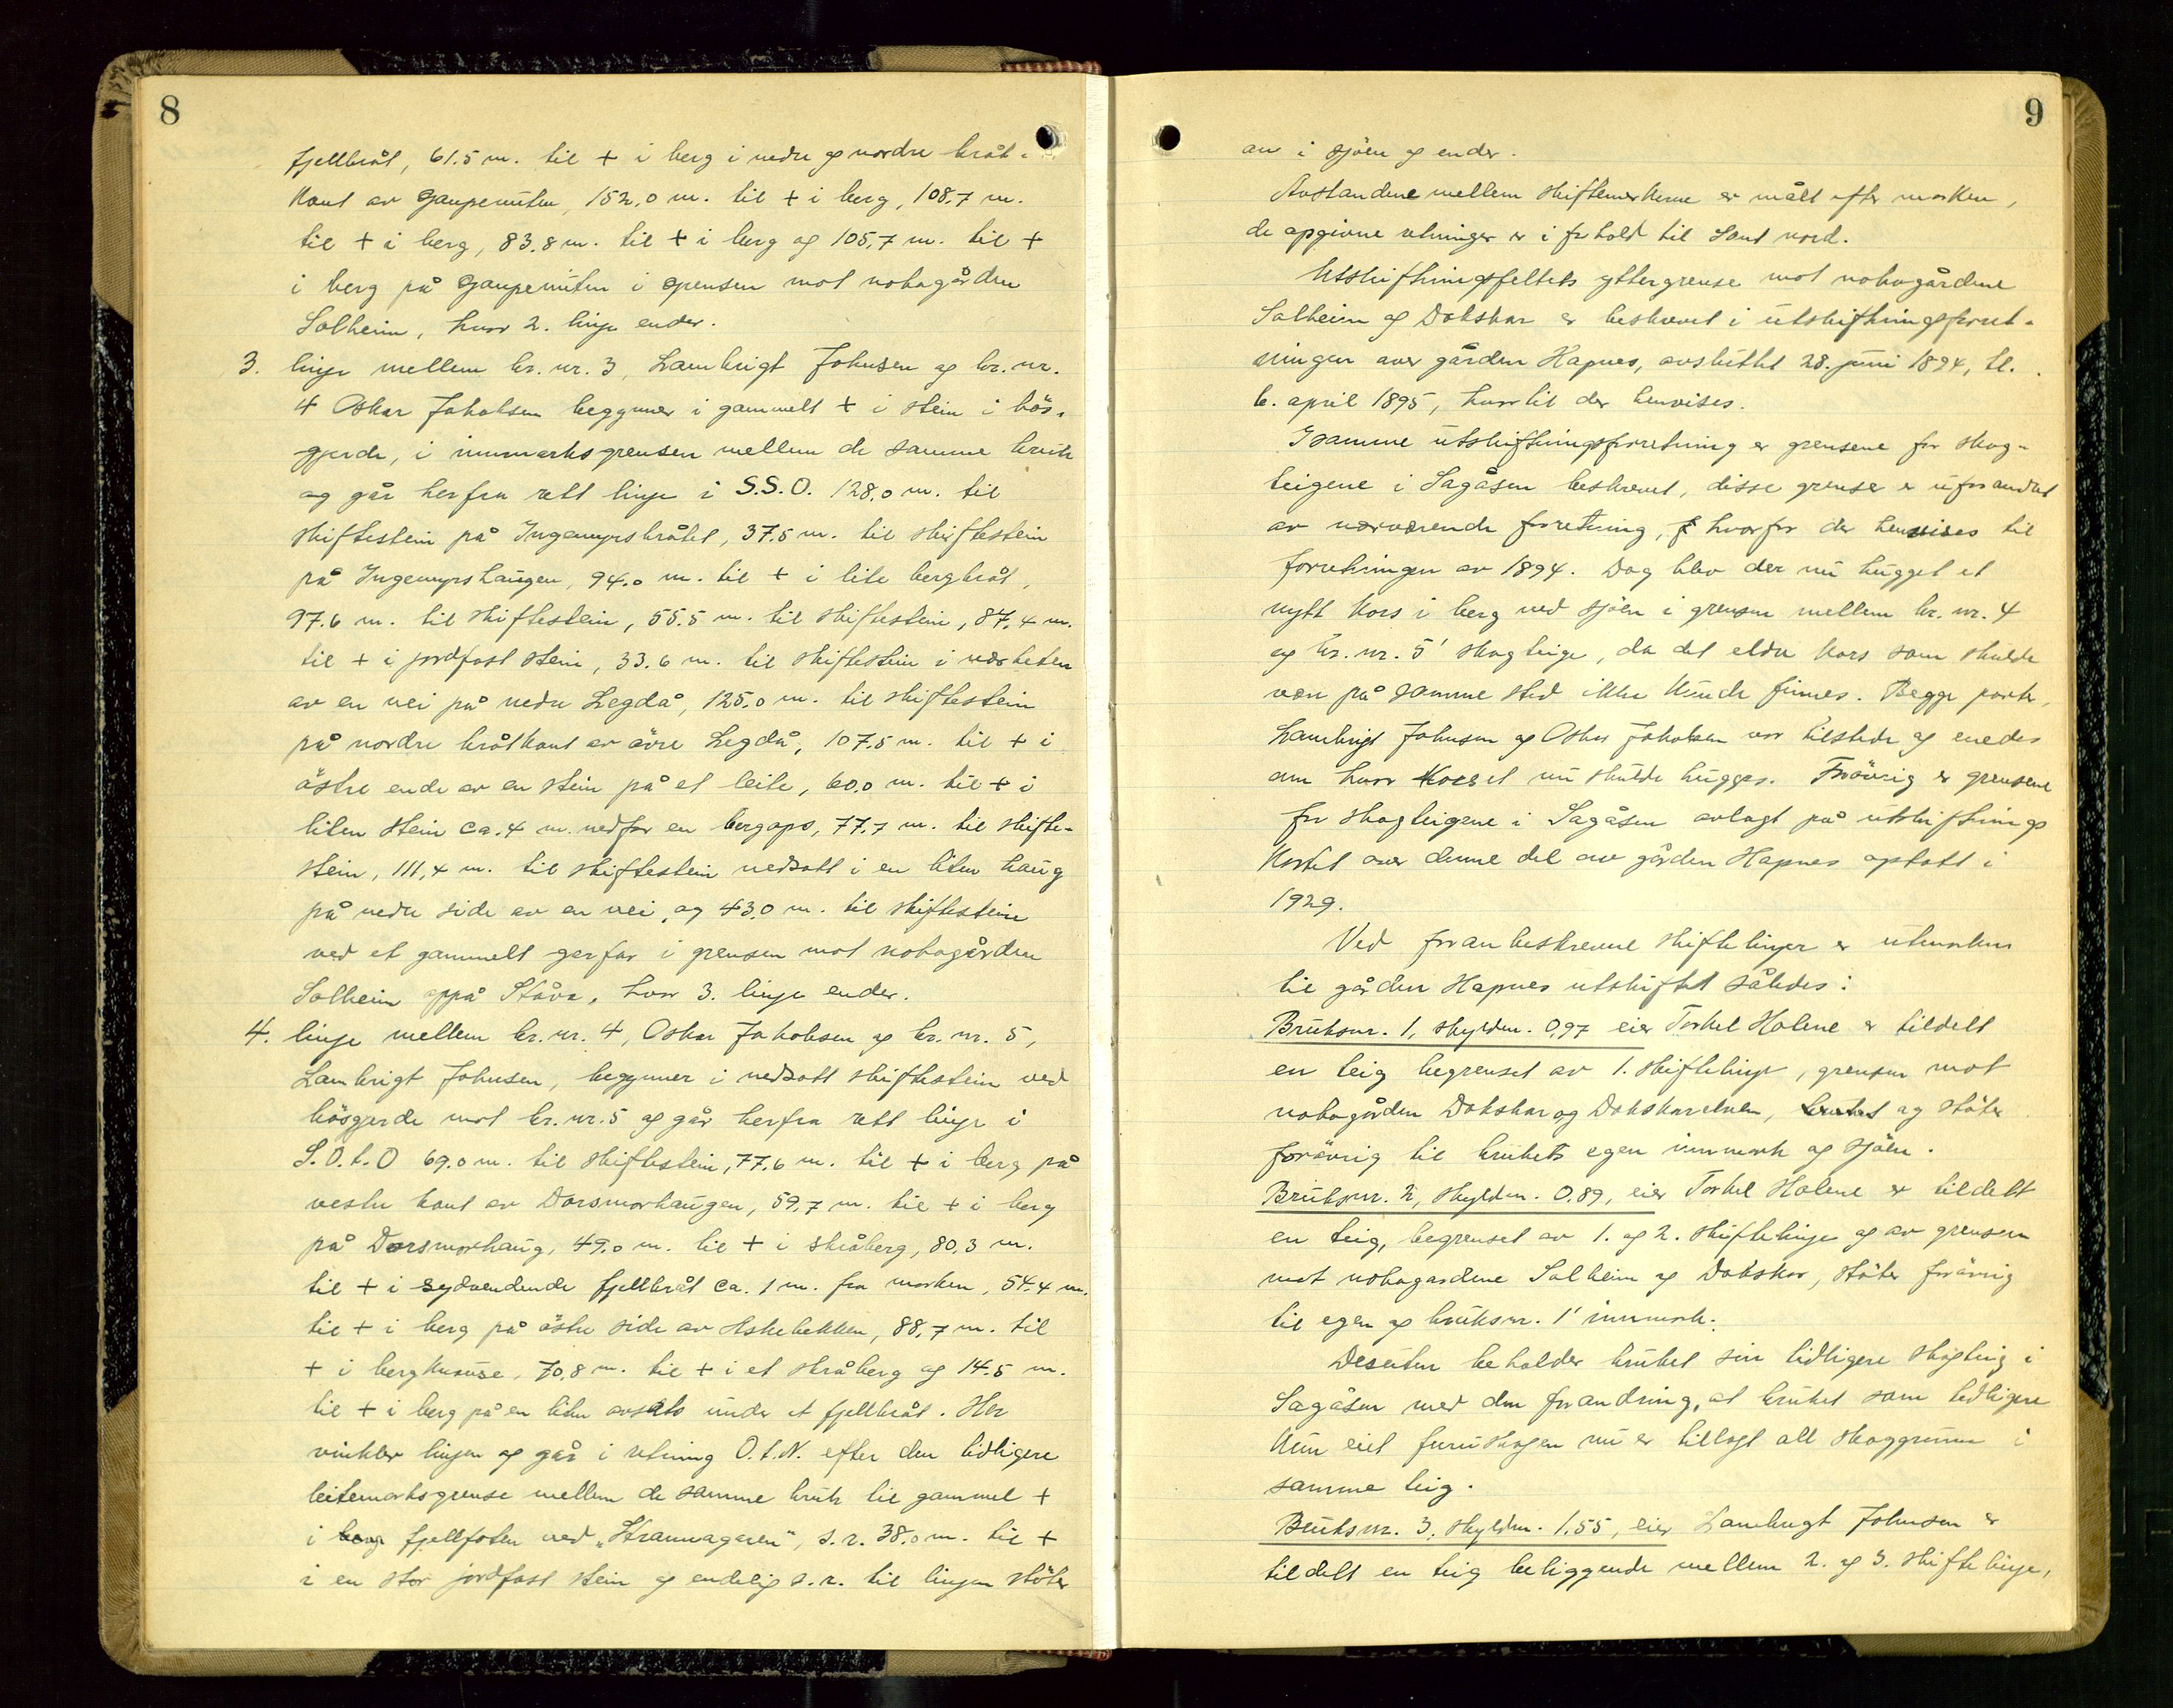 8
fjellbråt, 61.5 m. til + i berg i nedre og nordre bråt-
kant av Gaupenuten, 152,0 m. til + i berg, 108,7 m.
til + i berg, 83,8 m. til + i berg og 105,7 m. til +
i berg på Gaupenuten i grensen mot nabogården
Solheim, hvor 2. linje ender.
3. linje mellem br. nr. 3, Lambrigt Johnsen og br. nr.
4 Oskar Jakobsen begynner i gammelt + i stein i bös-
gjerde, i innmarksgrensen mellem de samme bruk
og går herfra rett linje i S.S.O. 128,0 m. til
skiftestein på Ingemyrsbråtet, 37,5 m. til skiftestein
på Ingemyrshaugen, 94,0 m. til + i lite bergbråt,
97.6 m. til skiftestein, 55.5 m. til skiftestein, 87,4 m.
til + i jordfast stein, 33.6 m. til skiftestein i nærheten
av en vei på nedre Legdå, 125,0 m. til skiftestein
på nordre bråtkant av övre Legdå, 107,5 m. til + i
östre ende av en stein på et leite, 60,0 m. til + i
liten stein ca. 4 m. nedfor en bergops, 77,7 m. til skifte-
stein, 111,4 m. til skiftestein nedsatt i en liten haug
på nedre side av en vei, og 43,0 m. til skiftestein
ved et gammelt gerfar i grensen mot nabogården
Solheim oppå Ståva, hvor 3. linje ender.
4. linje mellem br. nr. 4, Oskar Jakobsen og br. nr. 5,
Lambrigt Johnsen, begynner i nedsatt skiftestein ved
bösgerde mot br. nr. 5 og går herfra rett linje i
S.O.t.O 69.0 m. til skiftestein, 77.6 m. til + i berg på
vestre kant av Dorsmorhaugen, 59,7 m. til + i berg
på Dorsmorhaug, 49,0 m. til + i skråberg, 80,3 m.
til + i sydvendende fjellbråt ca. 1 m. fra marken, 54,4 m.
til + i berg på östre side av Askebekken, 88,7 m. til
+ i bergknause, 70,8 m. til + i et skråberg og 14.5 m.
til + i berg på en liten avsats under et fjellbråt. Her
vinkler linjen og går i retning O.t.N. efter den tidligere
leitemarksgrense mellem de samme bruk til gammel +
i berg fjellfoten ved „Stranvagaren", s.r. 38,0 m. til +
i en stor jordfast stein og endelig s.r. til linjen stöter
9
an i sjöen og ender.
Avstandene mellem skiftemerkene er målt efter marken,
de opgivne retninger er i forhold til sant nord.
Utskiftningsfeltets yttergrense mot nabogårdene
Solheim og Dokskar er beskrevet i utskiftningsforret-
ningen over gården Hapnes, avsluttet 28. juni 1894, tl.
6. april 1895, hvortil der henvises.
I samme utskiftningsforretning er grensene for skog-
teigene i Sagåsen beskrevet, disse grenser er uforandret
av nærværende forretning, hvorfor der henvises til
forretningen av 1894. Dog blev der nu hugget et
nytt kors i berg ved sjöen i grensen mellem br. nr. 4
og br. nr. 5' skogteige, da det eldre kors som skulde
være på samme sted ikke kunde finnes. Begge parter,
Lambrigt Johnsen og Oskar Jakobsen var tilstede og enedes
om hvor korset nu skulde hugges. Forövrig er grensene
for skogteigene i Sagåsen avlagt på utskiftnings
kartet over denne del av gården Hapnes optatt i
1929.
Ved foran beskrevne skiftelinjer er utmarken
til gården Hapnes utskiftet således:
Bruksnr. 1, skyldm. 0,97 eier Torkel Halene er tildelt
en teig begrenset av 1. skiftelinje, grensen mot
nabogården Dokskar og Dokskarelven, og stöter
forövrig til brukets egen innmark og sjöen.
Bruksnr. 2, skyldm. 0,89, eier Torkel Halene er tildelt
en teig, begrenset av 1. og 2. skiftelinje og av grensen
mot nabogardene Solheim og Dokskar, stöter forövrig
til egen og bruksnr. 1' innmark.
Desuten beholder bruket sin tidligere skogteig i
Sagåsen med den forandring, at bruket som tidligere
kun eiet furuskogen nu er tillagt all skoggrunn i
samme teig.
Bruksnr. 3, skyldm. 1,55, eier Lambrigt Johnsen er
tildelt en teig beliggende mellem 2. og 3. skiftelinje,